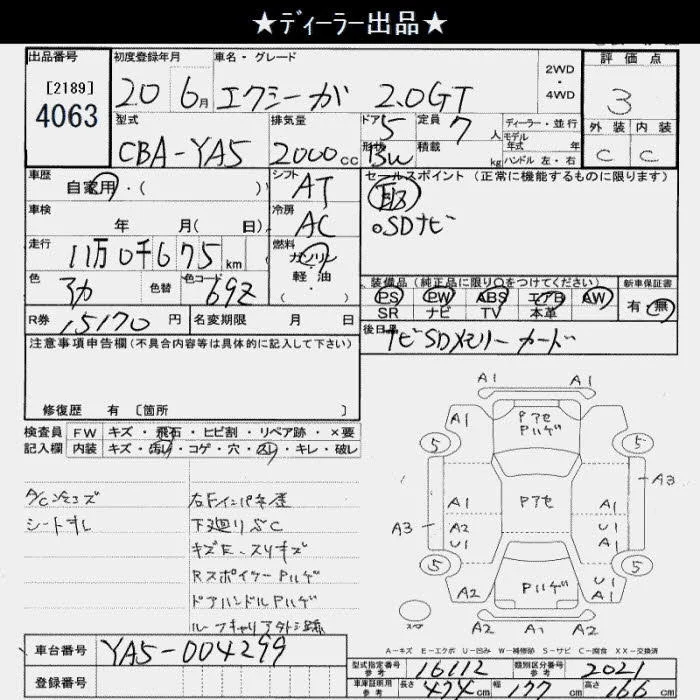 ★ディーラー出品★
出品番号 初度登録年月 車名・グレード 2WD・4WD 評価点
[2189]
4063
20 6月 エクシーガ 2.0GT 3
型式 排気量 ドア 定員 ディーラー・並行 外装 内装
CBA-YA5 2000cc 5 7人 モデル年式 年 C C
形状 積載 kg ハンドル 左・右
BW
車歴 シフト セールスポイント(正常に機能するものに限ります)
自家用・( ) AT
車検 冷房 ○SDナビ
年 月( 日) AC
走行 燃料
11万0千675km ガソリン・軽油・
色 色替 色コード 装備品(純正品に限り○をつけてください) 新車保証書
69Z PS PW ABS エアB AW 有・無
SR ナビ TV 本革
R券 15170円 名変期限 月 日 後日品
ナビSDメモリーカード
注意事項申告欄(不具合内容等は具体的に記入して下さい)
修復歴 有 [箇所 ]
検査員 FW キズ・飛石・ヒビ割・リペア跡・×要
記入欄 内装 キズ・汚レ・コゲ・穴・スレ・キレ・破レ
シートスレ
下廻りさびC
キズE、スリキズ
RスポイラーPハゲ
ドアハンドルPハゲ
ルーフキャリア外シ跡
A1 A1
A1 Pアセ Pハゲ A1
5 5
A3
A1 Pアセ U1 A1
A3 A2 U1 U1 A1
5 5
A2 Pハゲ U1 A1 A2
A2 A1 A2
スペア
A-キズ E-エクボ U-凹み W-補修跡 S-サビ C-腐食 XX-交換済
車台番号 YA5-004299
登録番号
型式指定番号 参考 16112 類別区分番号 参考 2021
車庫証明用 参考 長さ 474cm 幅 177cm 高さ 166cm